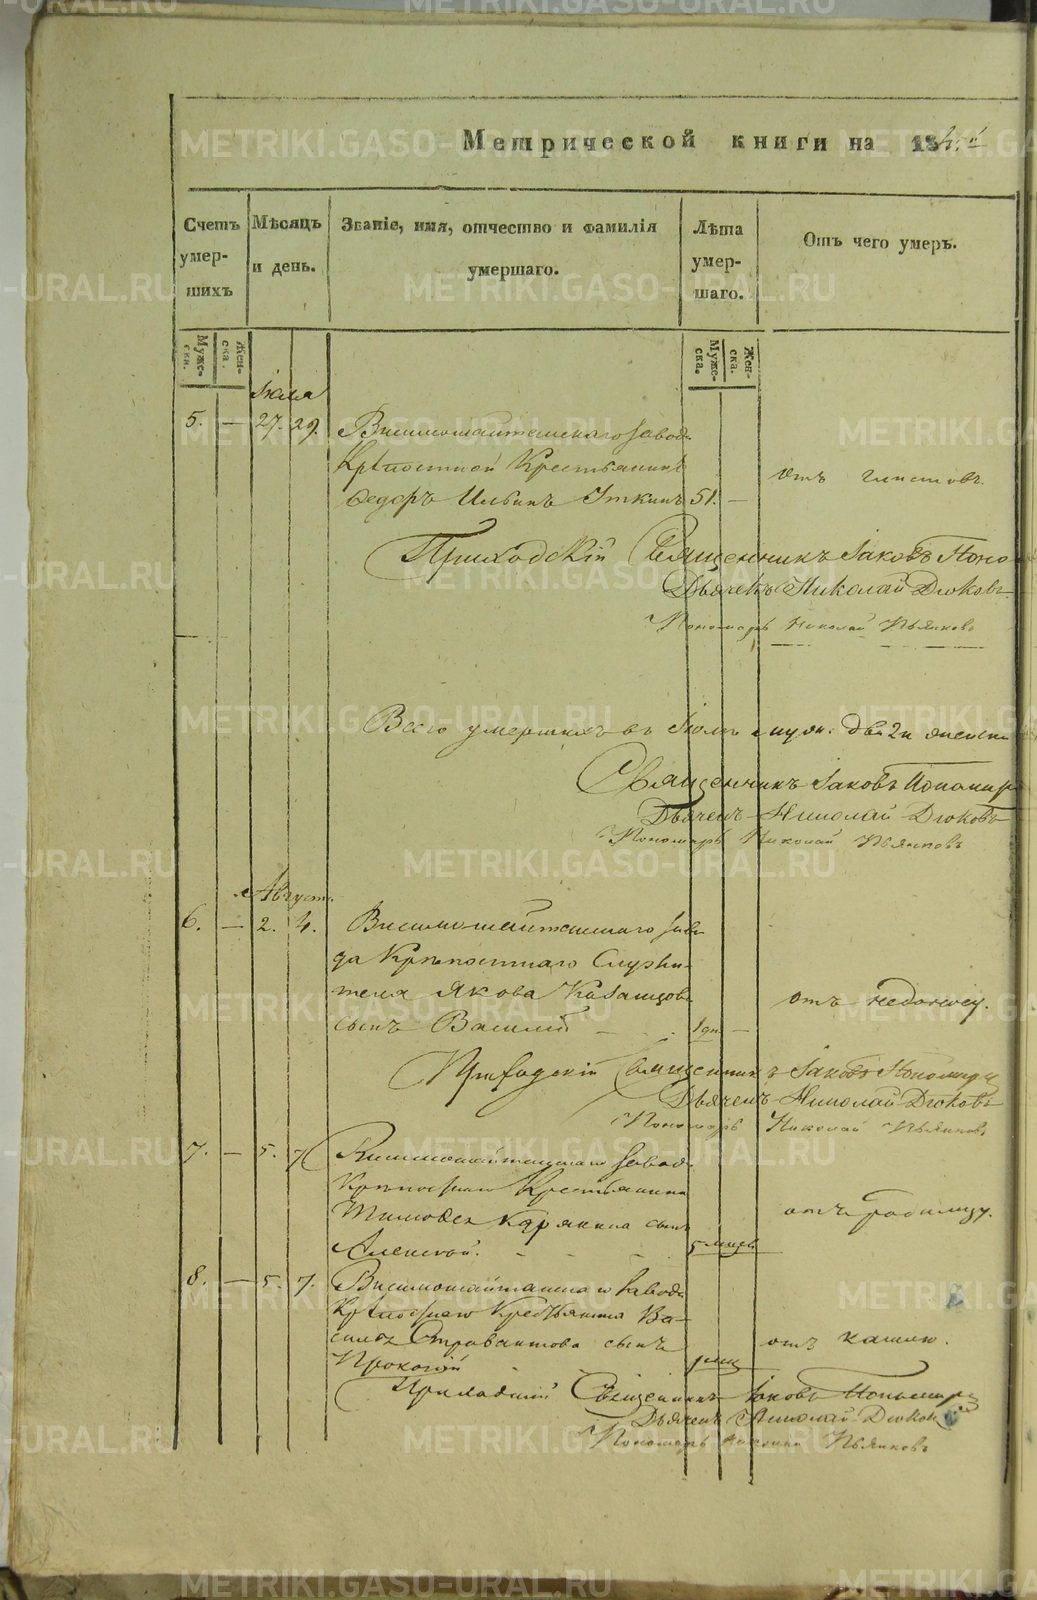 Метрической книги на 18
Счетъ умер-шихъ
Мѣсяцъ и день.
Званіе, имя, отчество и фамилія умершаго.
Лѣта умер-шаго.
Отъ чего умеръ.
Муже-ски.
Жен-ска.
Муже-ска.
Жен-ска.
Іюля
5. — 27. 29. Висимошайтанскаго завода
Крѣпостной Крестьянинъ
Федоръ Ильинъ Уткинъ 51. —
отъ глистовъ.
Приходскій Священникъ Іаковъ Поно
Дьячекъ Николай Дюковъ
Пономарь Николай Пьянковъ
Всего умершихъ въ Іюлѣ муж. два 2 и женска
Священникъ Іаковъ Пономар
Дьячекъ Николай Дюковъ
Пономарь Николай Пьянковъ
Август.
6. — 2. 4. Висимошайтанскаго заво
да Крѣпостнаго Служи-
теля Якова Казанцова
сынъ Василій 1 дн. —
отъ недоносу.
Приходскій Священникъ Іаковъ Пономар
Дьячекъ Николай Дюковъ
Пономарь Николай Пьянковъ
7. — 5. 7. Висимошайтанскаго завода
Крѣпостнаго Крестьянина
Тимофея Карякина сынъ
Алексей. 5 мцев
отъ родимцу.
8. — 5. 7. Висимошайтанскаго завода
Крѣпостнаго Крестьянина Ва-
силья сынъ
Прокопій 1 мц
отъ кашлю.
Приходскій Священникъ Іаковъ Пономар
Дьячекъ Николай Дюков
Пономарь Николай Пьянковъ
METRIKI.GASO-URAL.RU